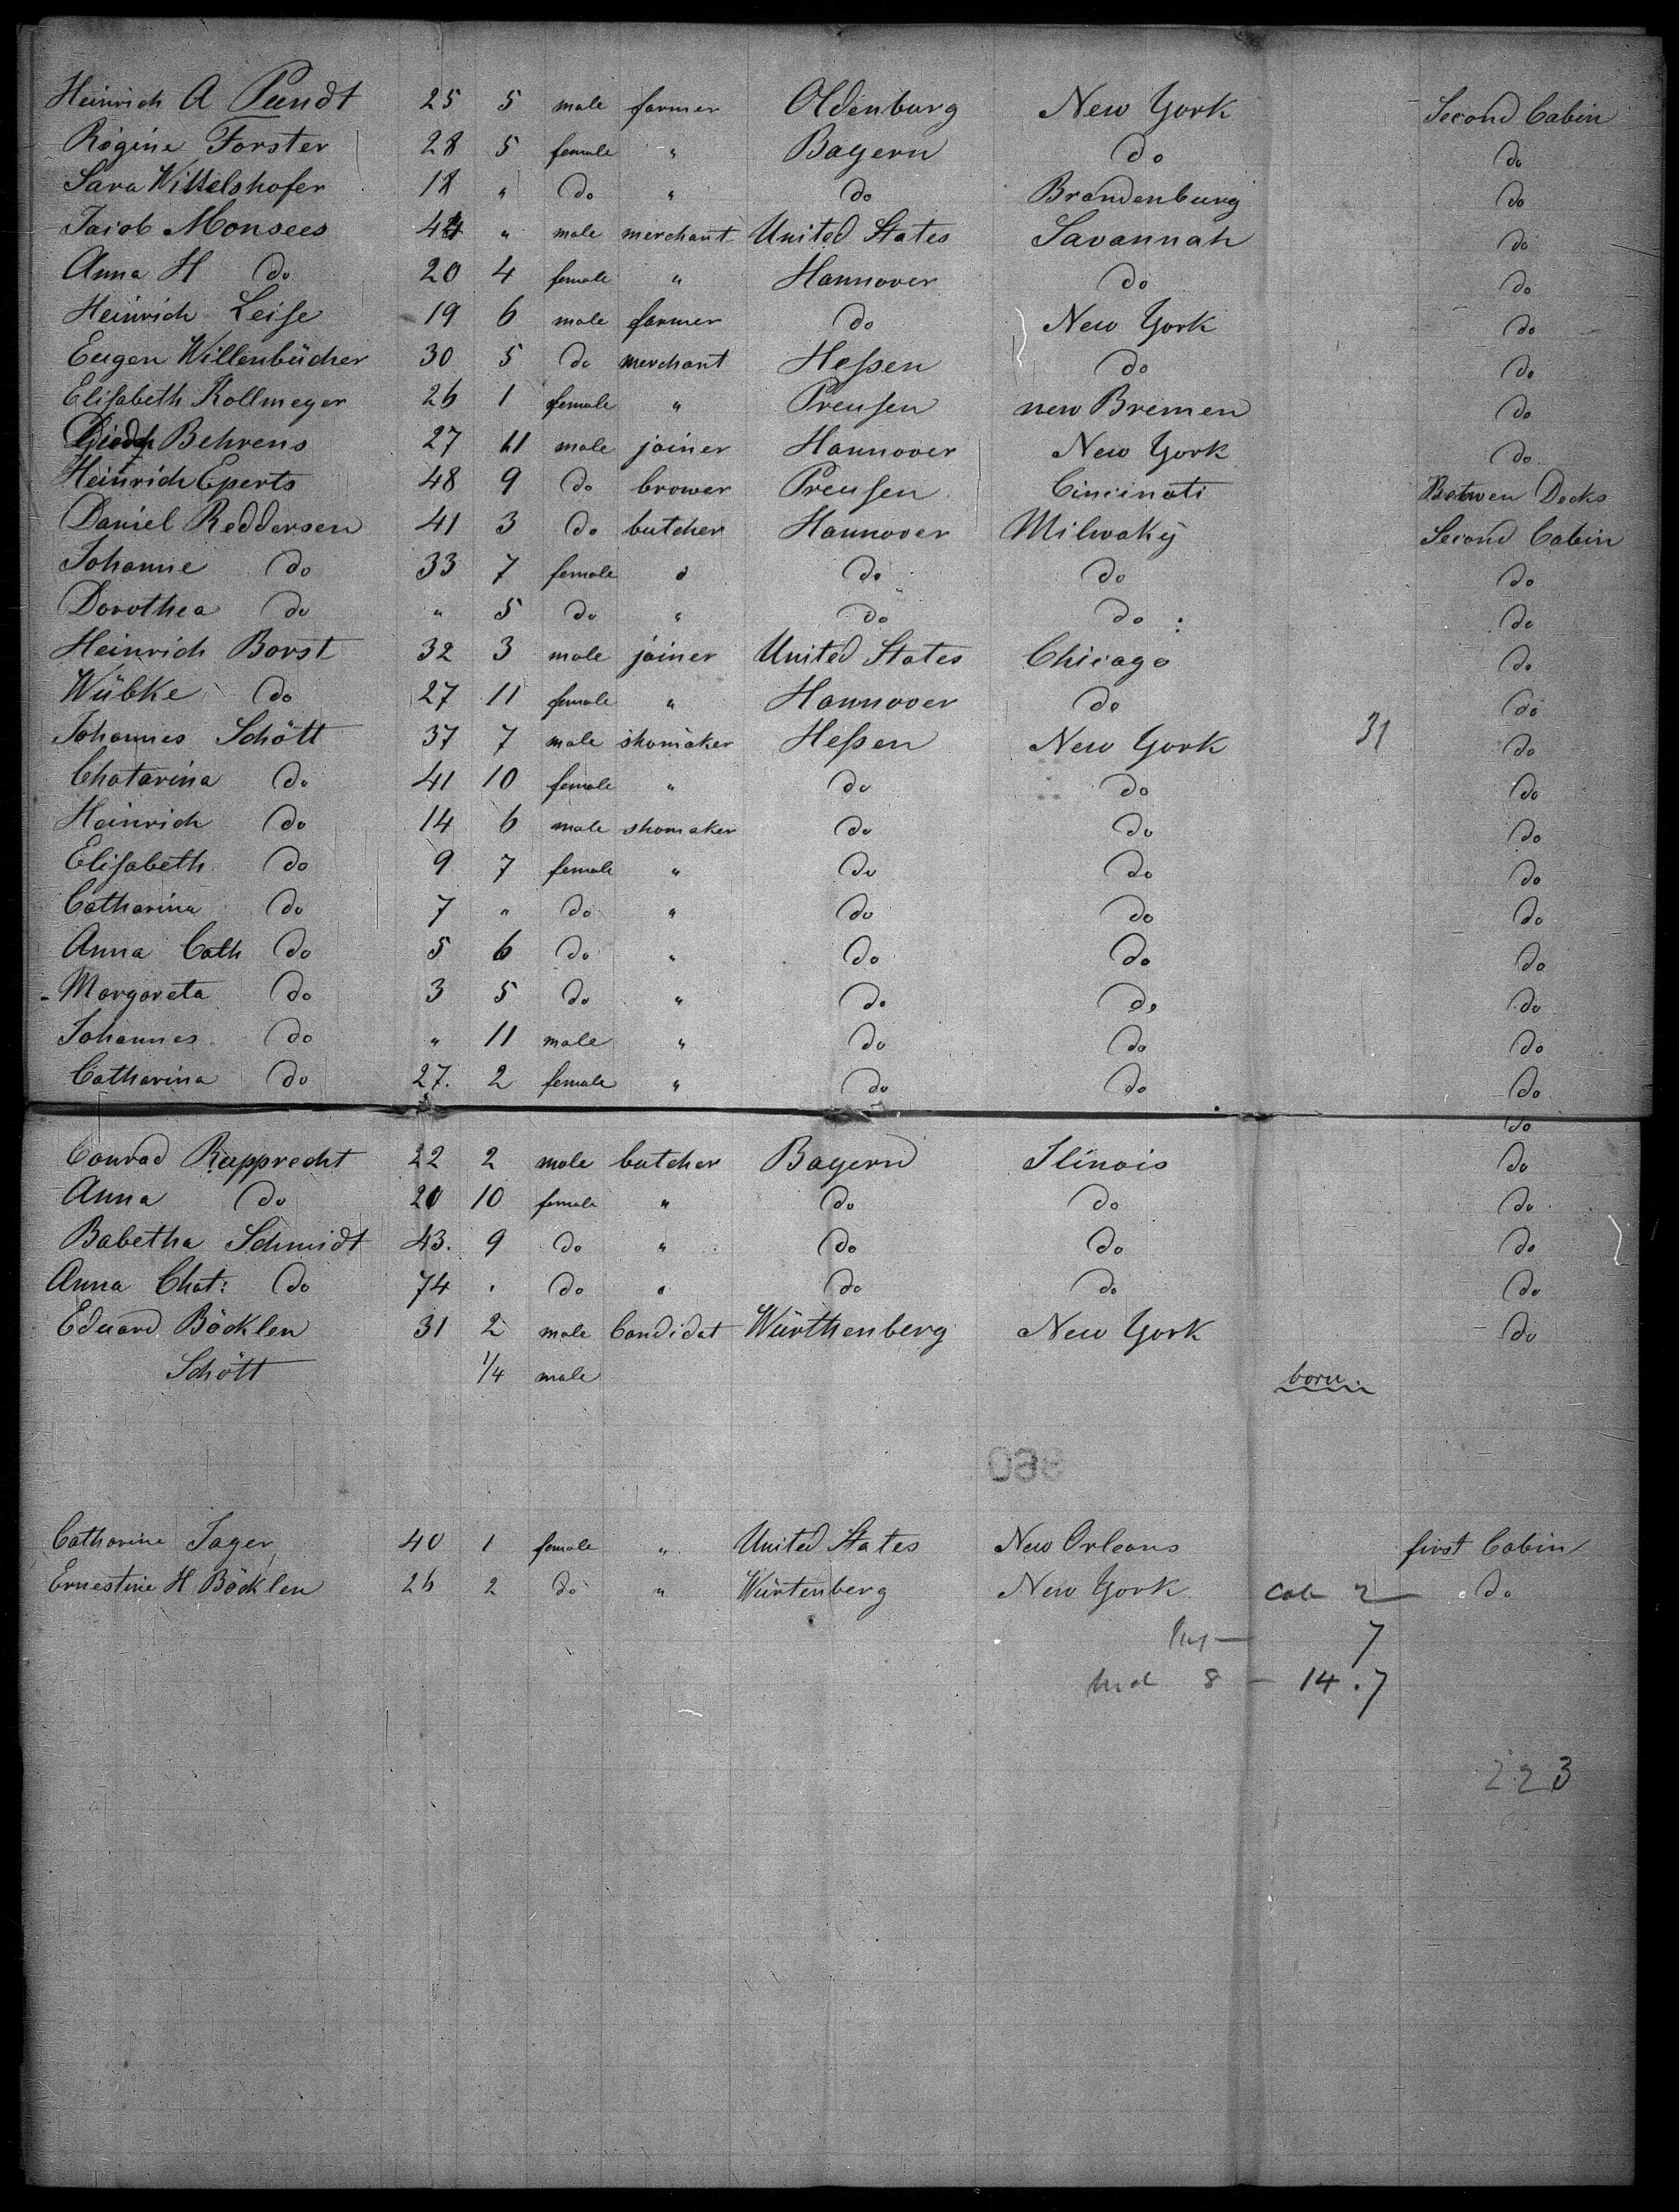 Heinrich A Pundt 25 5 male farmer Oldenburg New York Second Cabin
Regine Forster 28 5 female " Bayern do do
Sara Wittelshofer 18 " do " do Brandenburg do
Jacob Monsees 44 " male merchant United States Savannah do
Anna H do 20 4 female " Hannover do do
Heinrich Leise 19 6 male farmer do New York do
Eugen Willenbücher 30 5 do merchant Heßen do do
Elisabeth Kollmeyer 26 1 female " Preusen new Bremen do
Behrens 27 11 male joiner Hannover New York do
Heinrich Eperts 48 9 do brower Preusen Cincinati Betwen Decks
Daniel Reddersen 41 3 do butcher Hannover Milwaky Second Cabin
Johanne do 33 7 female " do do do
Dorothea do " 5 do " do do do
Heinrich Borst 32 3 male joiner United States Chicago do
Wübke do 27 11 female " Hannover do do
Johannes Schött 37 7 male shomaker Heßen New York 31 do
Chatarina do 41 10 female " do do do
Heinrich do 14 6 male shomaker do do do
Elisabeth do 9 7 female " do do do
Catharina do 7 " do " do do do
Anna Cath do 5 6 do " do do do
Margareta do 3 5 do " do do do
Johannes do " 11 male " do do do
Catharina do 27. 2 female " do do do
do
Conrad Rupprecht 22 2 male butcher Bayern Ilinois do
Anna do 20 10 female " do do do
Babetha Schmidt 43. 9 do " do do do
Anna Chat: do 74 " do " do do do
Eduard Böcklen 31 2 male Candidat Würthenberg New York do
Schött 1/4 male born
960
Catharine Jager 40 1 female " United States New Orleans first Cabin
Ernestine H Böcklen 26 2 do " Würtenberg New York Cab 2 do
7
8 – 14 . 7
223